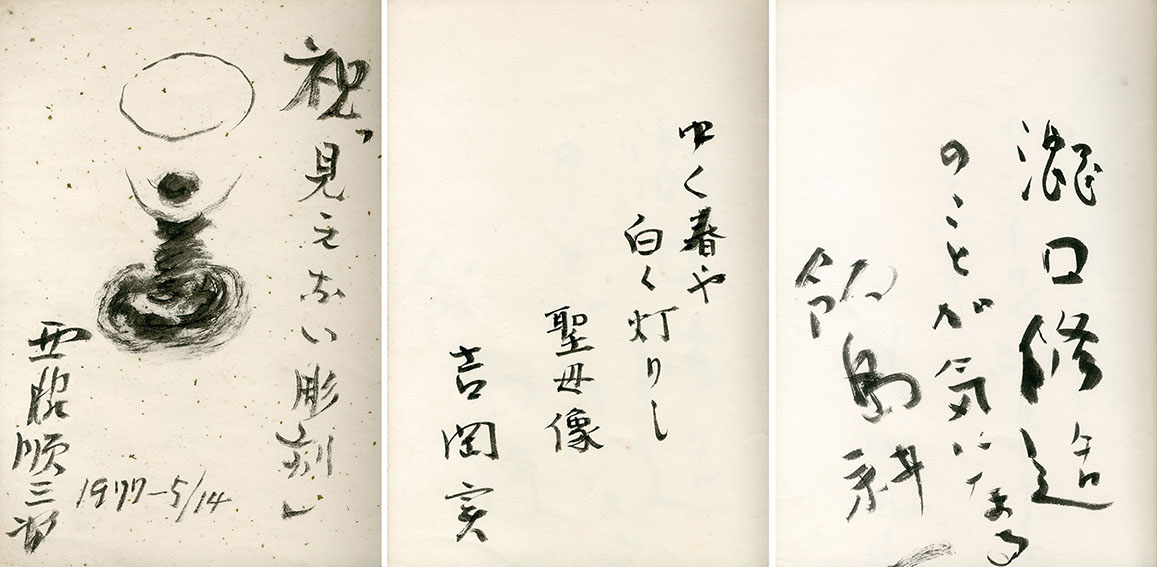 祝「見えない彫刻」
1977-5/14
ゆく春や
白く灯りし
聖母像
吉岡実
瀧口修造
のことが気になる
飯島耕一